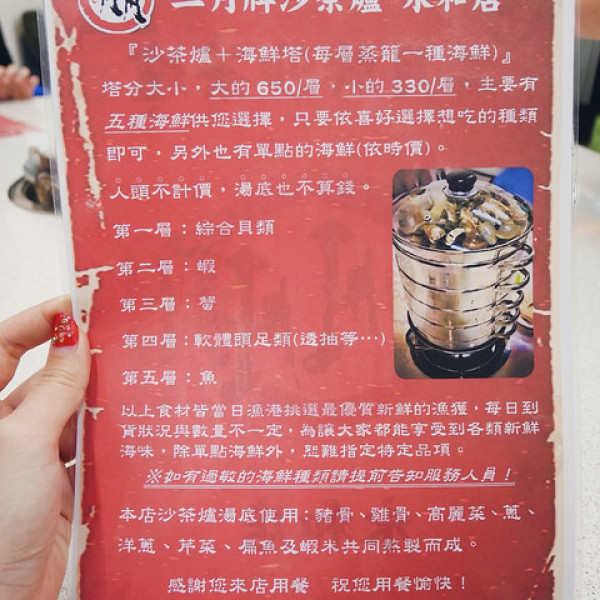 二月牌沙茶爐 永和店
『沙茶爐＋海鮮塔(每層蒸籠一種海鮮)』
塔分大小，大的 650/層，小的 330/層，主要有
五種海鮮供您選擇，只要依喜好選擇想吃的種類
即可，另外也有單點的海鮮(依時價)。
人頭不計價，湯底也不算錢。
第一層：綜合貝類
第二層：蝦
第三層：蟹
第四層：軟體頭足類(透抽等…)
第五層：魚
以上食材皆當日漁港挑選最優質新鮮的漁獲，每日到
貨狀況與數量不一定，為讓大家都能享受到各類新鮮
海味，除單點海鮮外，恕難指定特定品項。
※如有過敏的海鮮種類請提前告知服務人員！
本店沙茶爐湯底使用：豬骨、雞骨、高麗菜、蔥、
洋蔥、芹菜、扁魚及蝦米共同熬製而成。
感謝您來店用餐 祝您用餐愉快！